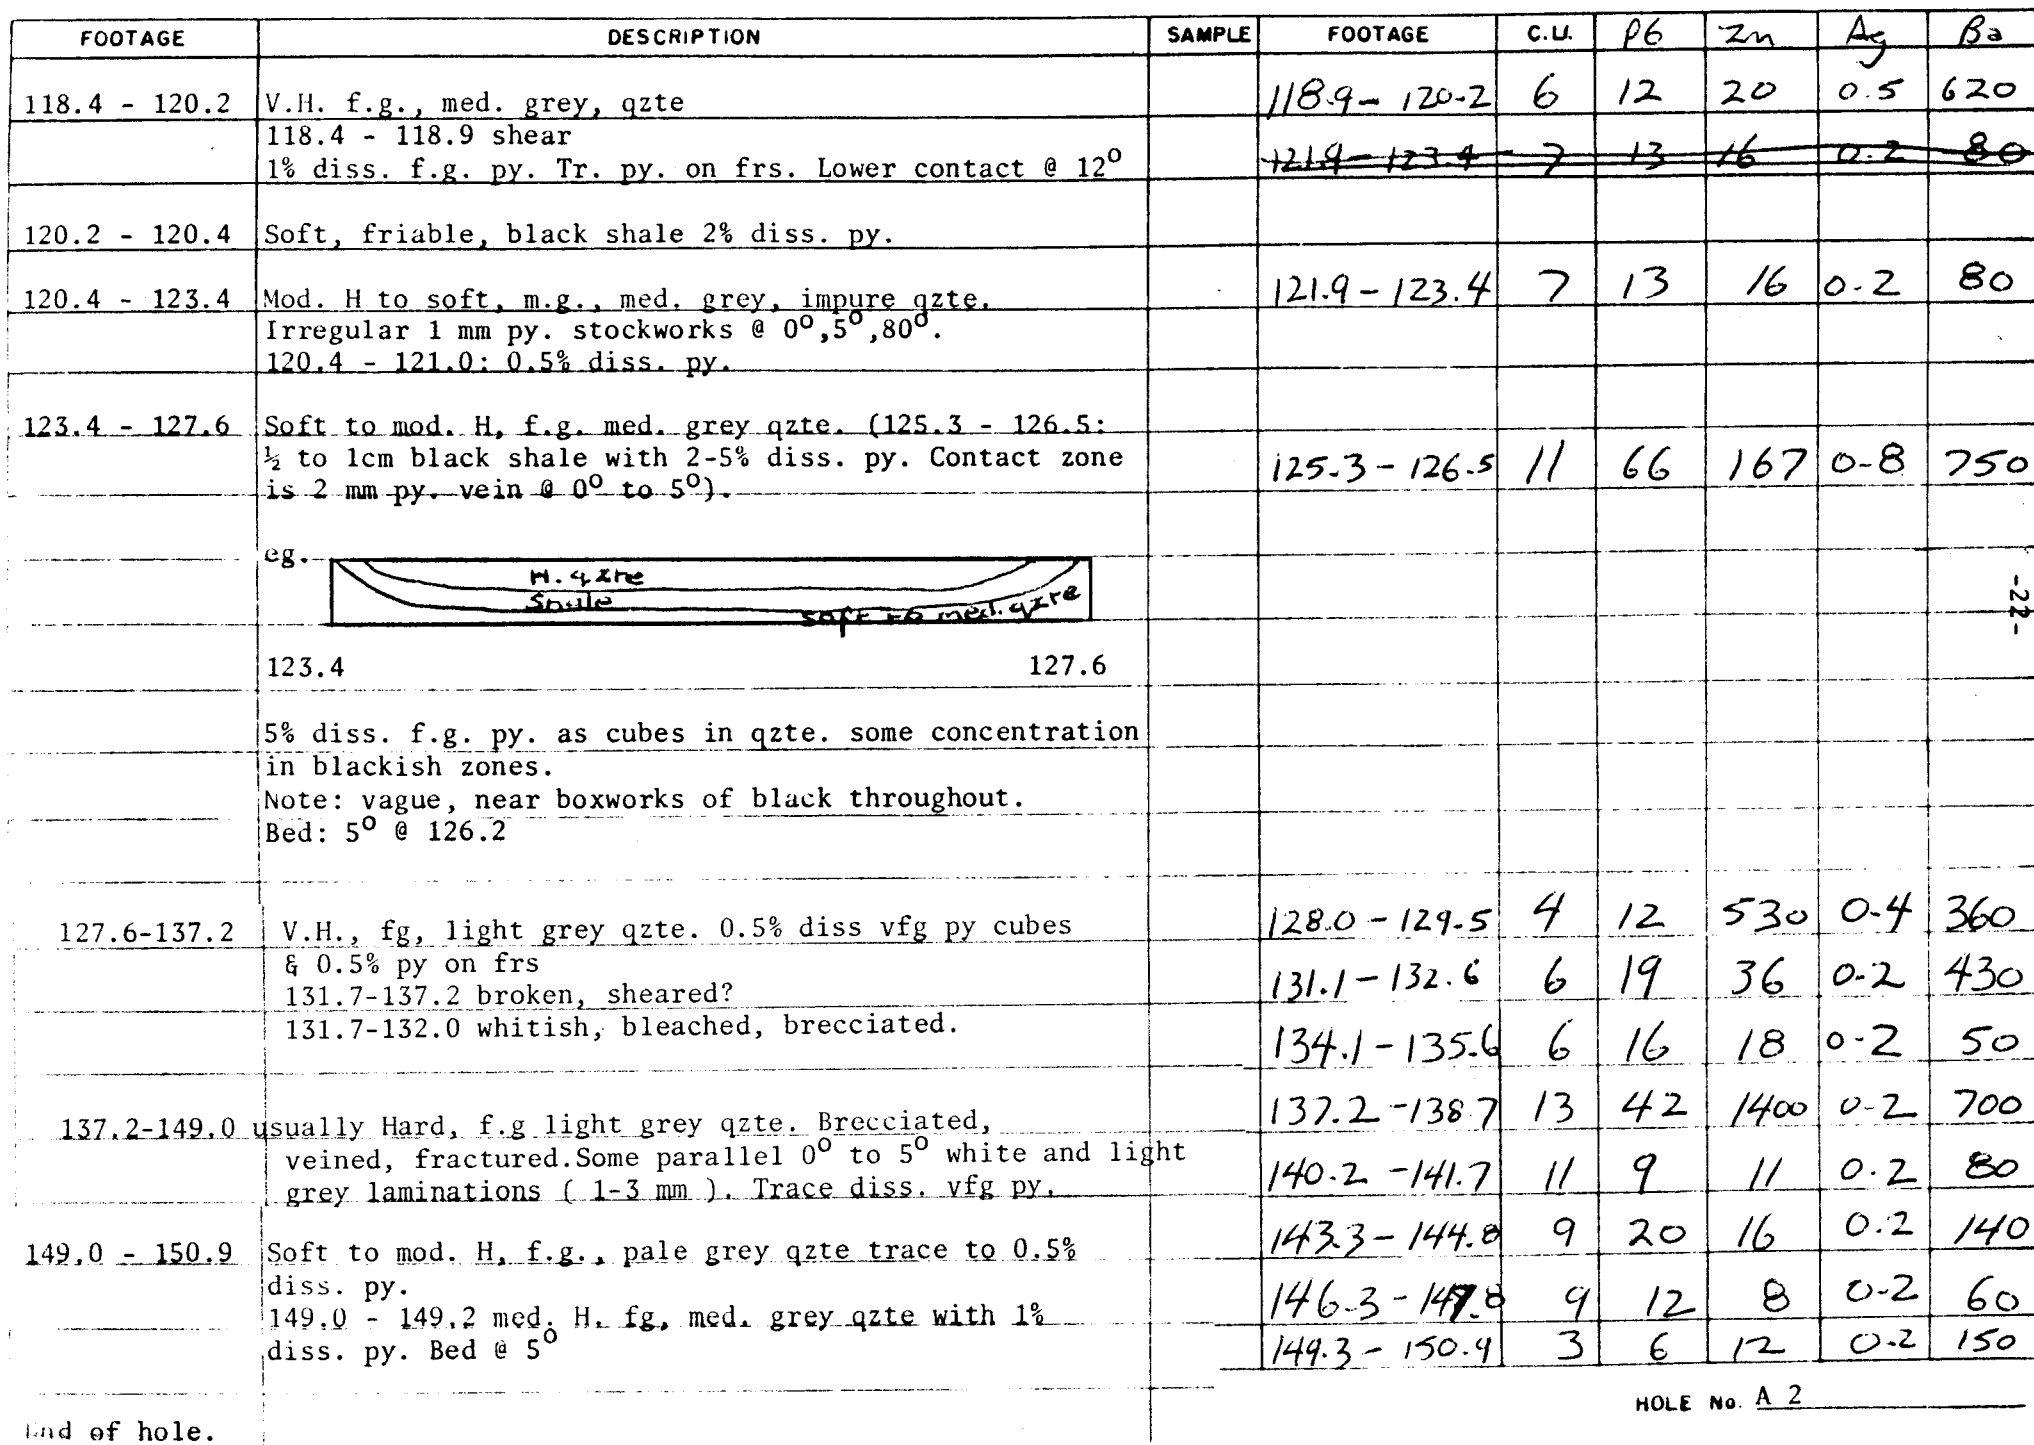 FOOTAGE DESCRIPTION SAMPLE FOOTAGE C.U. Pb Zn Ag Ba
118.4 - 120.2 V.H. f.g., med. grey, qzte 118.9 - 120.2 6 12 20 0.5 620
118.4 - 118.9 shear
1% diss. f.g. py. Tr. py. on frs. Lower contact @ 12° 121.9 - 123.4 7 13 16 0.2 80
120.2 - 120.4 Soft, friable, black shale 2% diss. py.
120.4 - 123.4 Mod. H to soft, m.g., med. grey, impure qzte. 121.9 - 123.4 7 13 16 0.2 80
Irregular 1 mm py. stockworks @ 0°,5°,80°.
120.4 - 121.0: 0.5% diss. py.
123.4 - 127.6 Soft to mod. H, f.g. med. grey qzte. (125.3 - 126.5:
½ to 1cm black shale with 2-5% diss. py. Contact zone 125.3 - 126.5 11 66 167 0.8 750
is 2 mm py. vein @ 0° to 5°).
eg.
H. qzte
Shale
soft to med. qzte
-22-
123.4 127.6
5% diss. f.g. py. as cubes in qzte. some concentration
in blackish zones.
Note: vague, near boxworks of black throughout.
Bed: 5° @ 126.2
127.6-137.2 V.H., fg, light grey qzte. 0.5% diss vfg py cubes 128.0 - 129.5 4 12 530 0.4 360
& 0.5% py on frs
131.7-137.2 broken, sheared? 131.1 - 132.6 6 19 36 0.2 430
131.7-132.0 whitish, bleached, brecciated.
134.1 - 135.6 6 16 18 0.2 50
137.2-149.0 usually Hard, f.g light grey qzte. Brecciated, 137.2 - 138.7 13 42 1400 0.2 700
veined, fractured.Some parallel 0° to 5° white and light
grey laminations ( 1-3 mm ). Trace diss. vfg py. 140.2 - 141.7 11 9 11 0.2 80
149.0 - 150.9 Soft to mod. H, f.g., pale grey qzte trace to 0.5% 143.3 - 144.8 9 20 16 0.2 140
diss. py.
149.0 - 149.2 med. H. fg, med. grey qzte with 1% 146.3 - 147.8 9 12 8 0.2 60
diss. py. Bed @ 5° 149.3 - 150.9 3 6 12 0.2 150
HOLE No. A 2
End of hole.